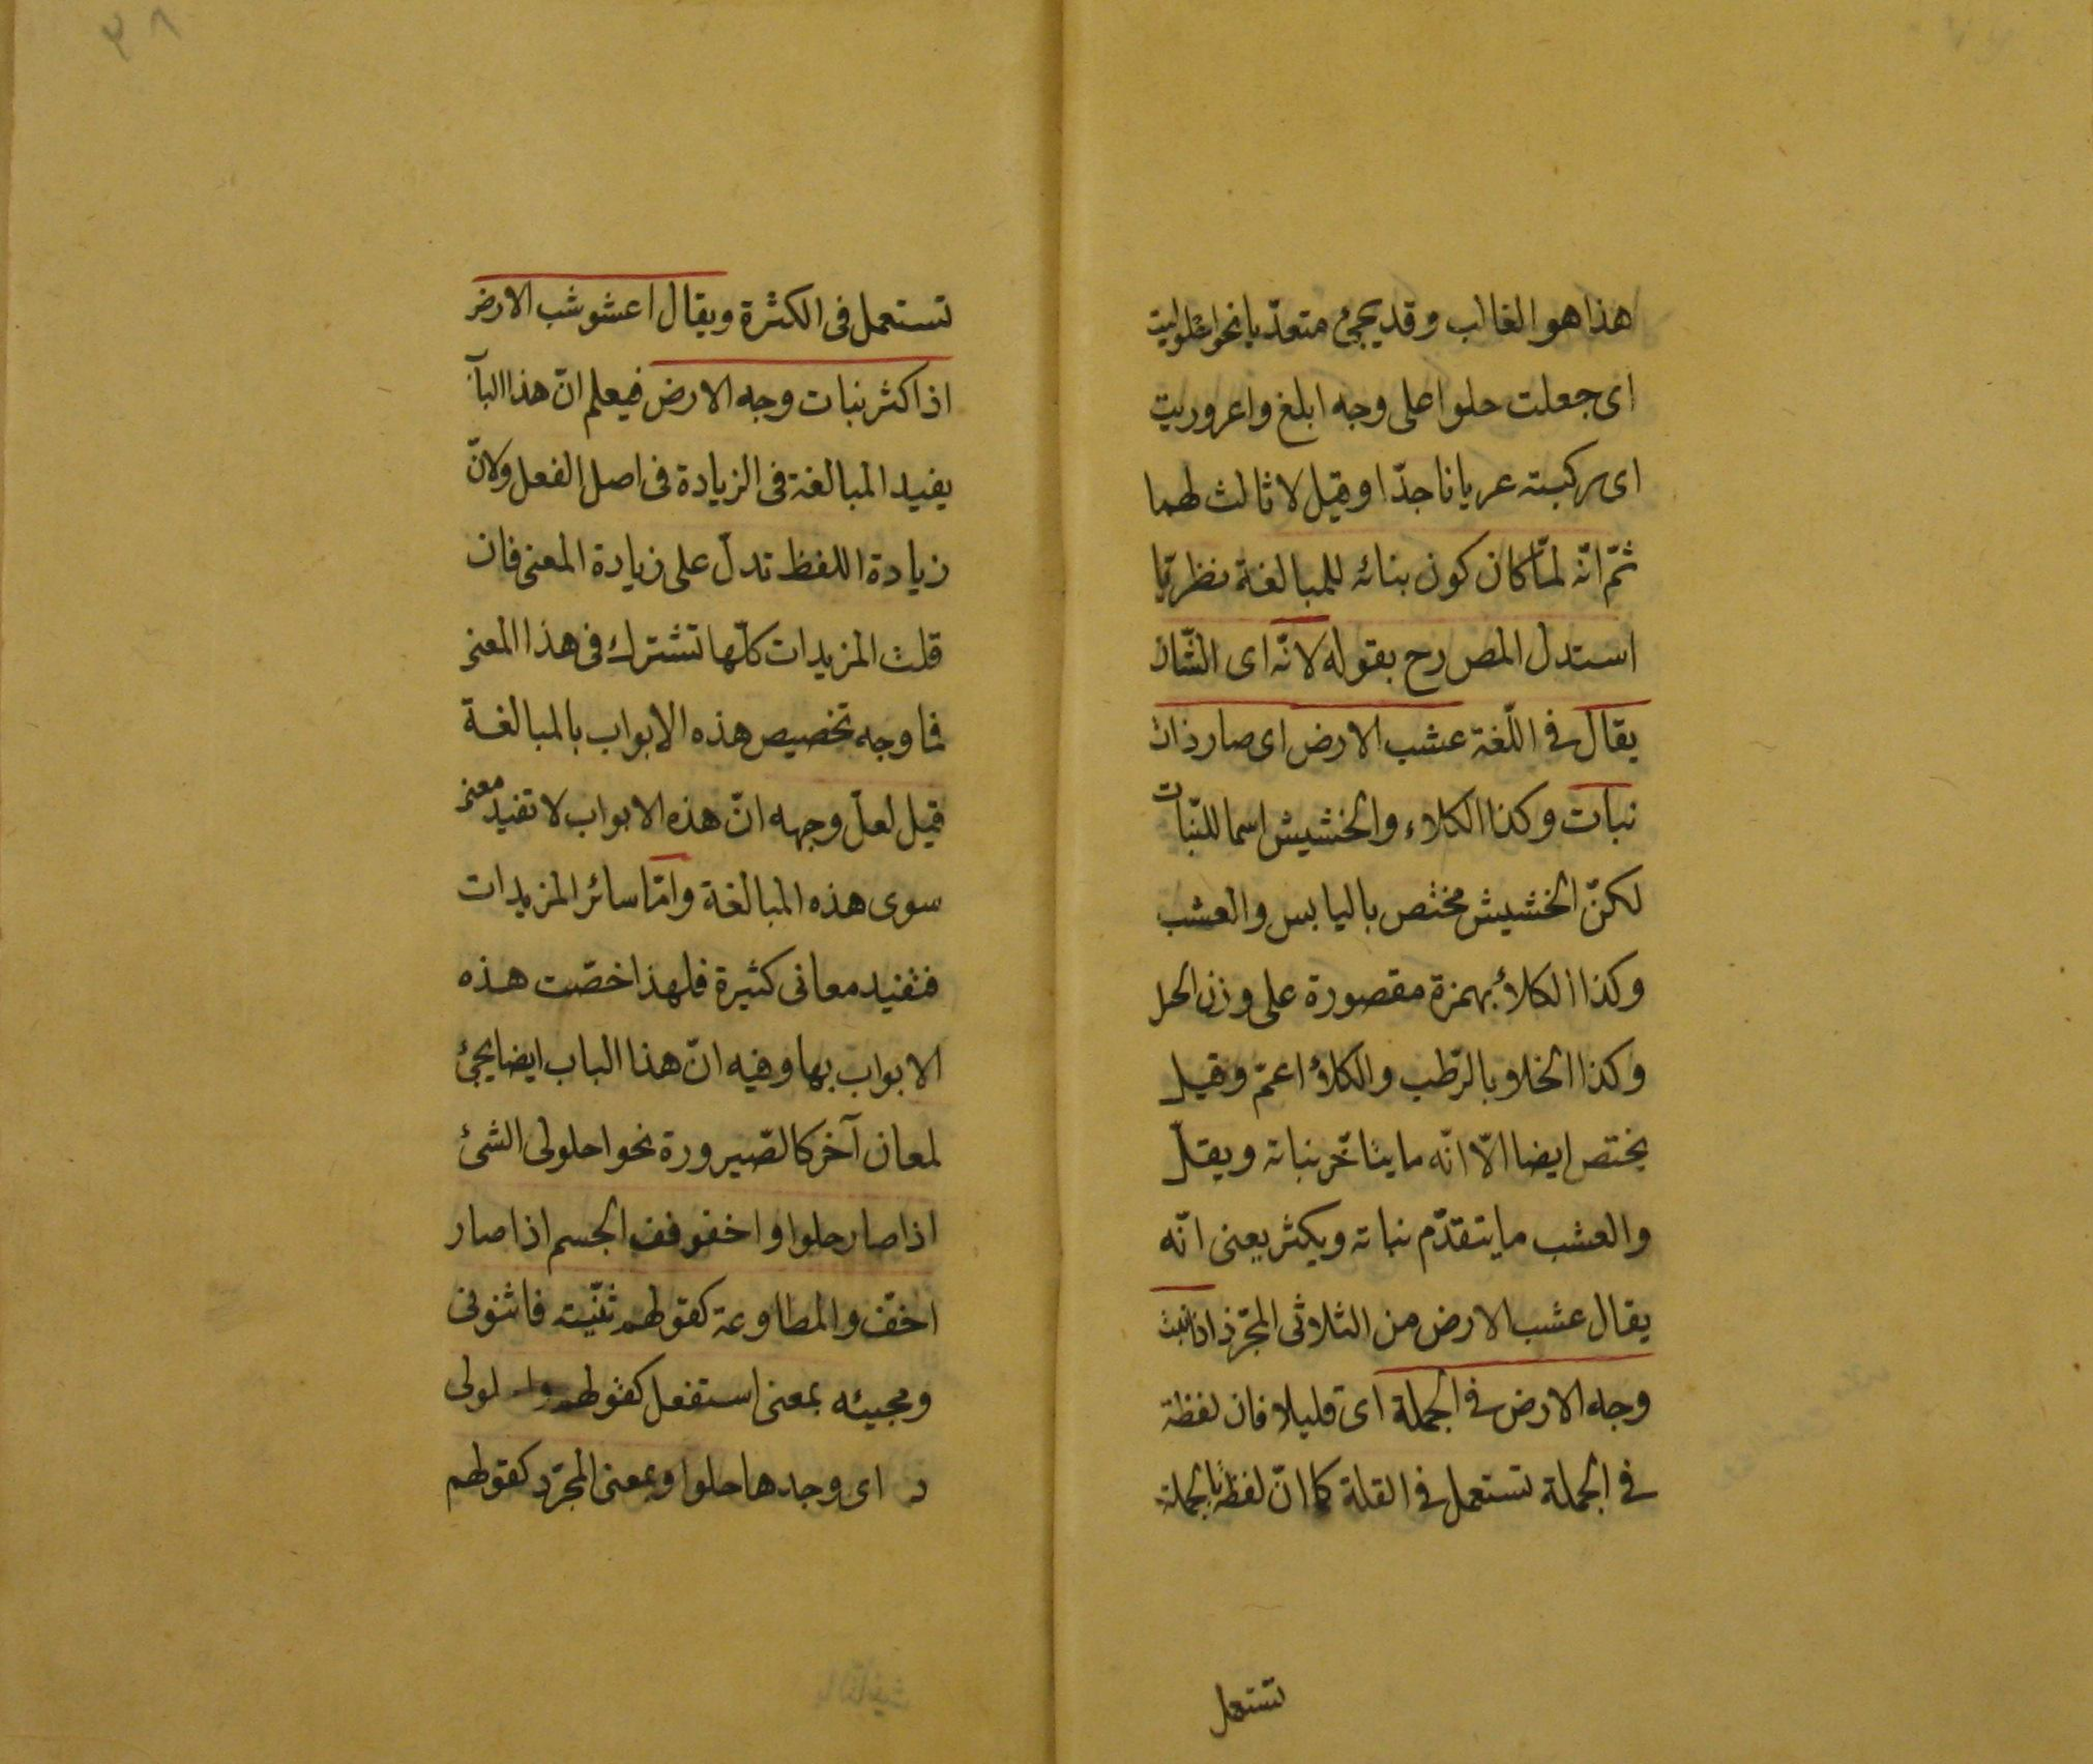 هذا هو الغالب وقد يجئ متعدّيا نحو احلوليت
اى جعلت حلوا على وجه ابلغ واعروريت
اى ركبته عريانا جدّا وقيل لا ثالث لهما
ثمّ انّه لمّا كان كون بنائه للمبالغة نظريّا
استدل المص رح بقوله لانّه اى الشّان
يقال فى اللّغة عشب الارض اى صار ذات
نبات وكذا الكلاء والخشيش اسما للنّبات
لكنّ الخشيش مختص باليابس والعشب
وكذا الكلأ بهمزة مقصورة على وزن الحل
وكذا الخلاو بالرّطب والكلأ اعمّ وقيل
يختص ايضا الّا انّه ما يتأخّر نباته ويقلّ
والعشب ما يتقدّم نباته ويكثر يعنى انّه
يقال عشب الارض من الثلاثى المجرّد اذا نبت
وجه الارض فى الجملة اى قليلا فان لفظة
فى الجملة تستعمل فى القلة كما انّ لفظة بالجملة
تستعمل
٢٨
تستعمل فى الكثرة ويقال اعشوشب الارض
اذا كثر نبات وجه الارض فيعلم انّ هذا البآ
يفيد المبالغة فى الزيادة فى اصل الفعل ولانّ
زيادة اللفظ تدلّ على زيادة المعنى فان
قلت المزيدات كلّها تشترك فى هذا المعنى
فما وجه تخصيص هذه الابواب بالمبالغة
قيل لعلّ وجهه انّ هذه الابواب لا تفيد معنى
سوى هذه المبالغة وامّا سائر المزيدات
فتفيد معانى كثيرة فلهذا خصّت هذه
الابواب بها وفيه انّ هذا الباب ايضا يجئ
لمعان آخر كالصّيرورة نحو احلولى الشئ
اذا صار حلوا واخفوفف الجسم اذا صار
اخفّ والمطاوعة كقولهم ثنّيته فاثنونى
ومجيئه بمعنى استفعل كقولهم لولى
د اى وجدها حلوا وبمعنى المجرّد كقولهم